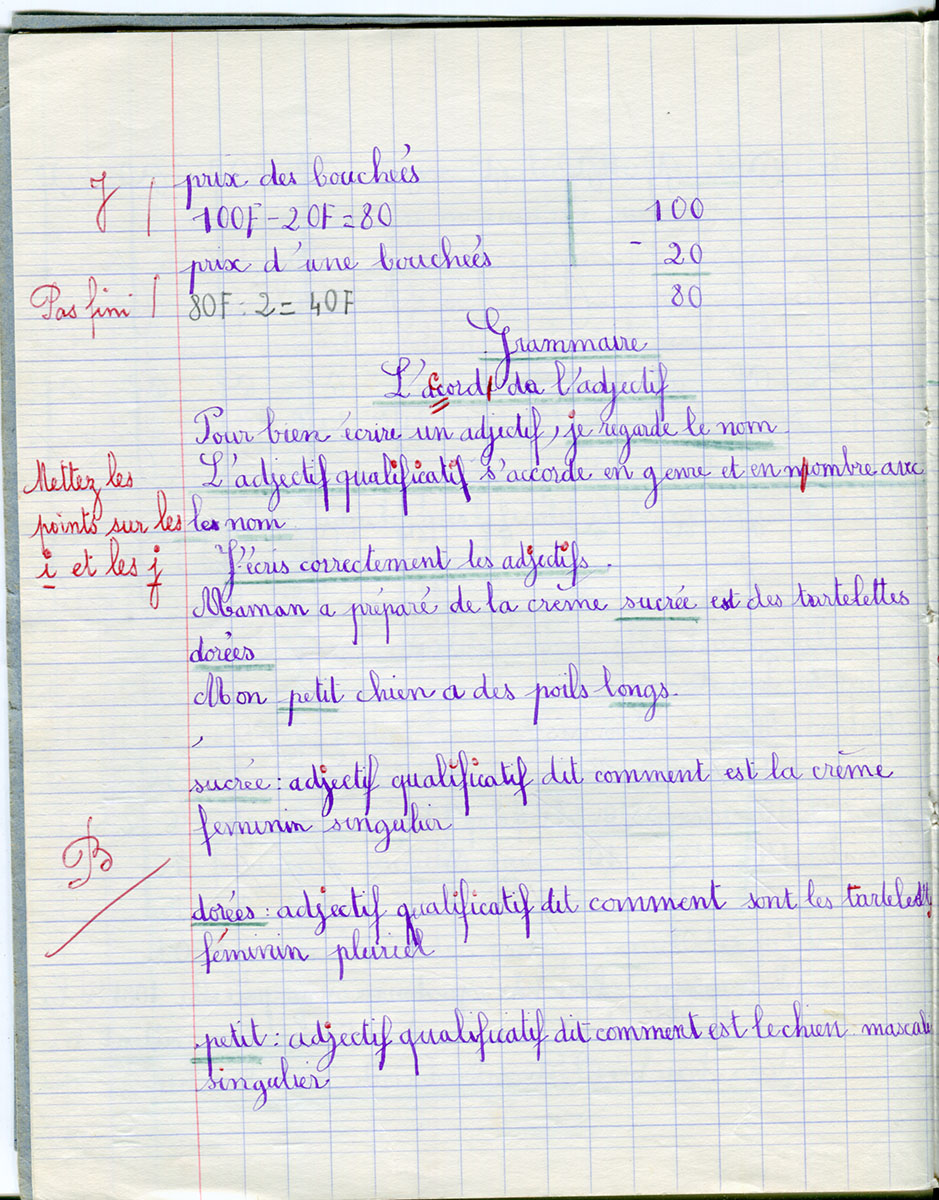 prix des bouchées
100F - 20F = 80
100
prix d'une bouchées
- 20
Pas fini
80F : 2 = 40F
80
Grammaire
L'accord de l'adjectif
Pour bien écrire un adjectif, je regarde le nom
L'adjectif qualificatif s'accorde en genre et en nombre avec
le nom
Mettez les
points sur les
i et les j
J'écris correctement les adjectifs.
Maman a préparé de la crème sucrée est des tartelettes
dorées
Mon petit chien a des poils longs.
sucrée : adjectif qualificatif dit comment est la crème
feminin singulier
B
dorées : adjectif qualificatif dit comment sont les
féminin pluriel
petit : adjectif qualificatif dit comment est le chien
singulier